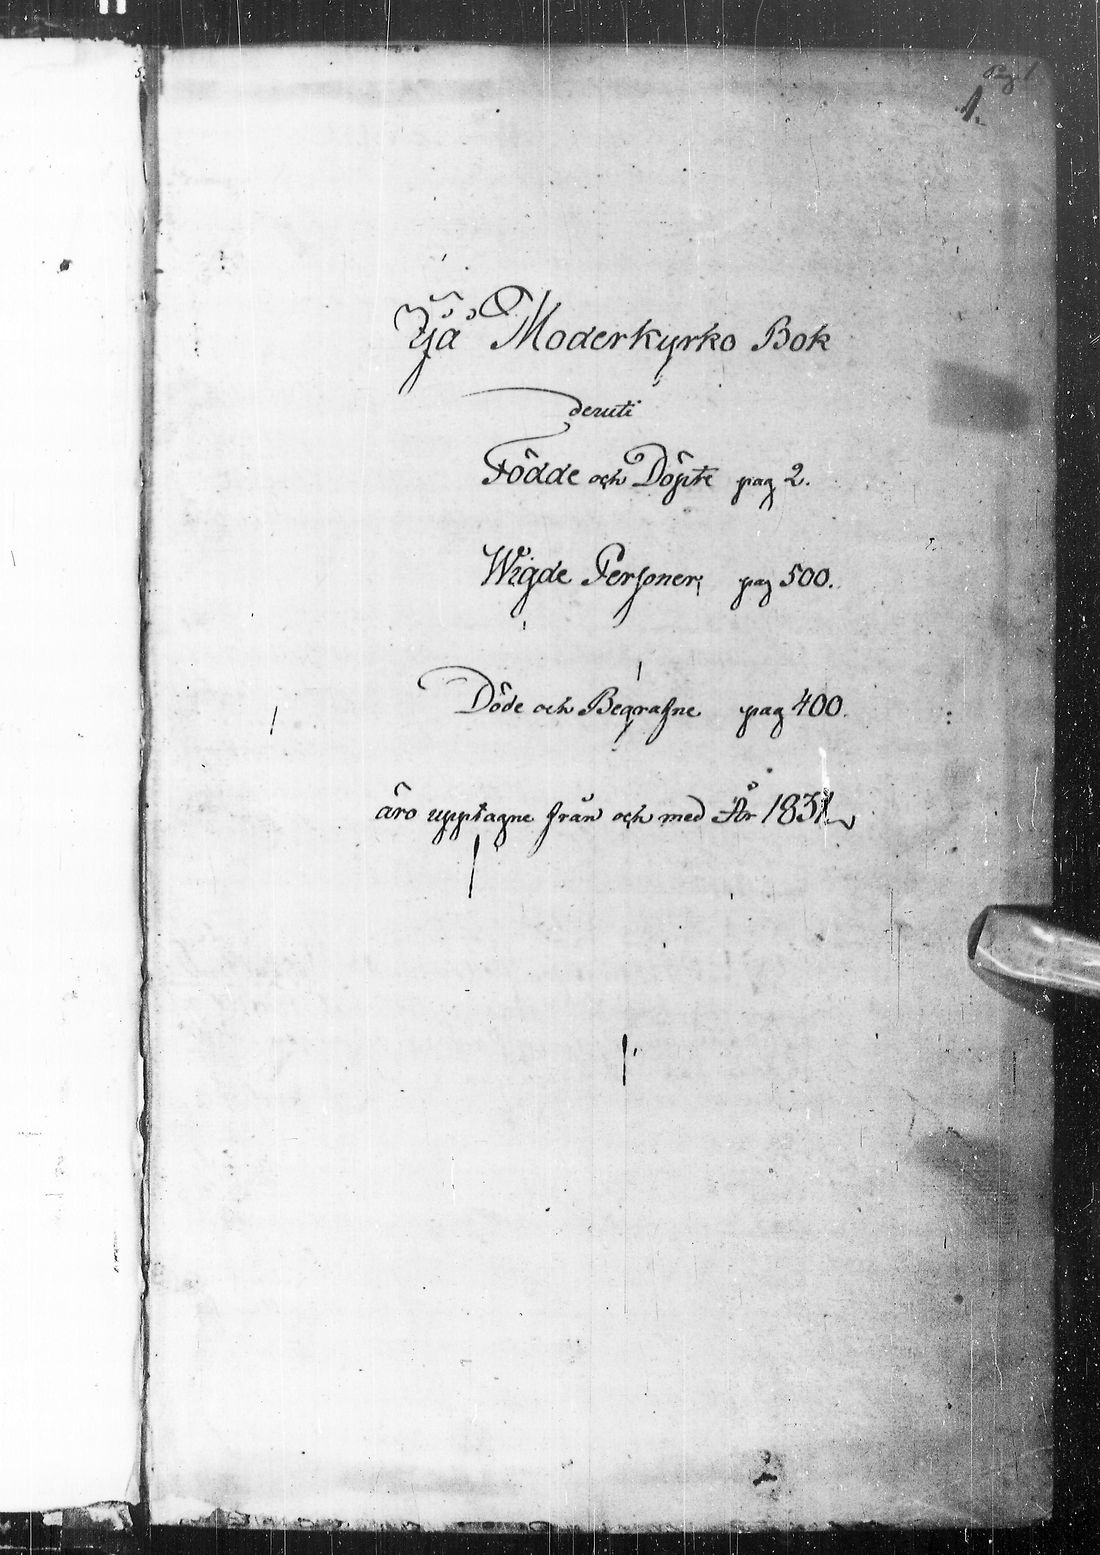 Pag 1
1.
Ijå Moderkyrko Bok
deruti
Födde och Döpte pag 2.
Wigde Personer, pag 500.
Döde och Begrafne pag 400.
äro upptagne från och med År 1831